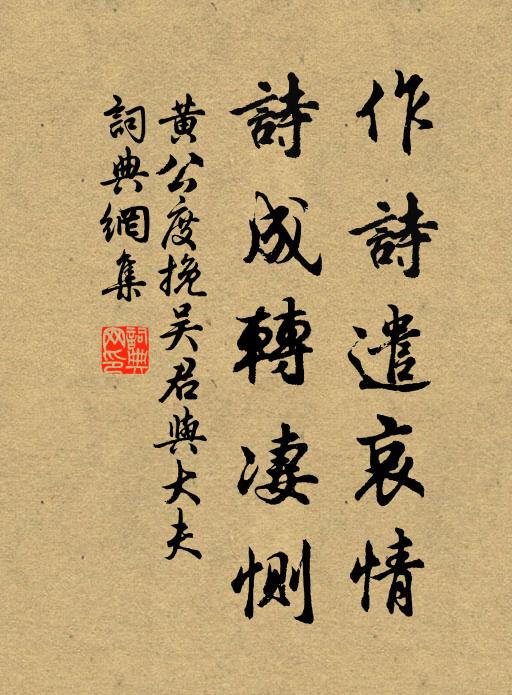 作詩遣哀情
詩成轉凄惻
黃公度挽吴君與大夫
詞典網集
詞典网印